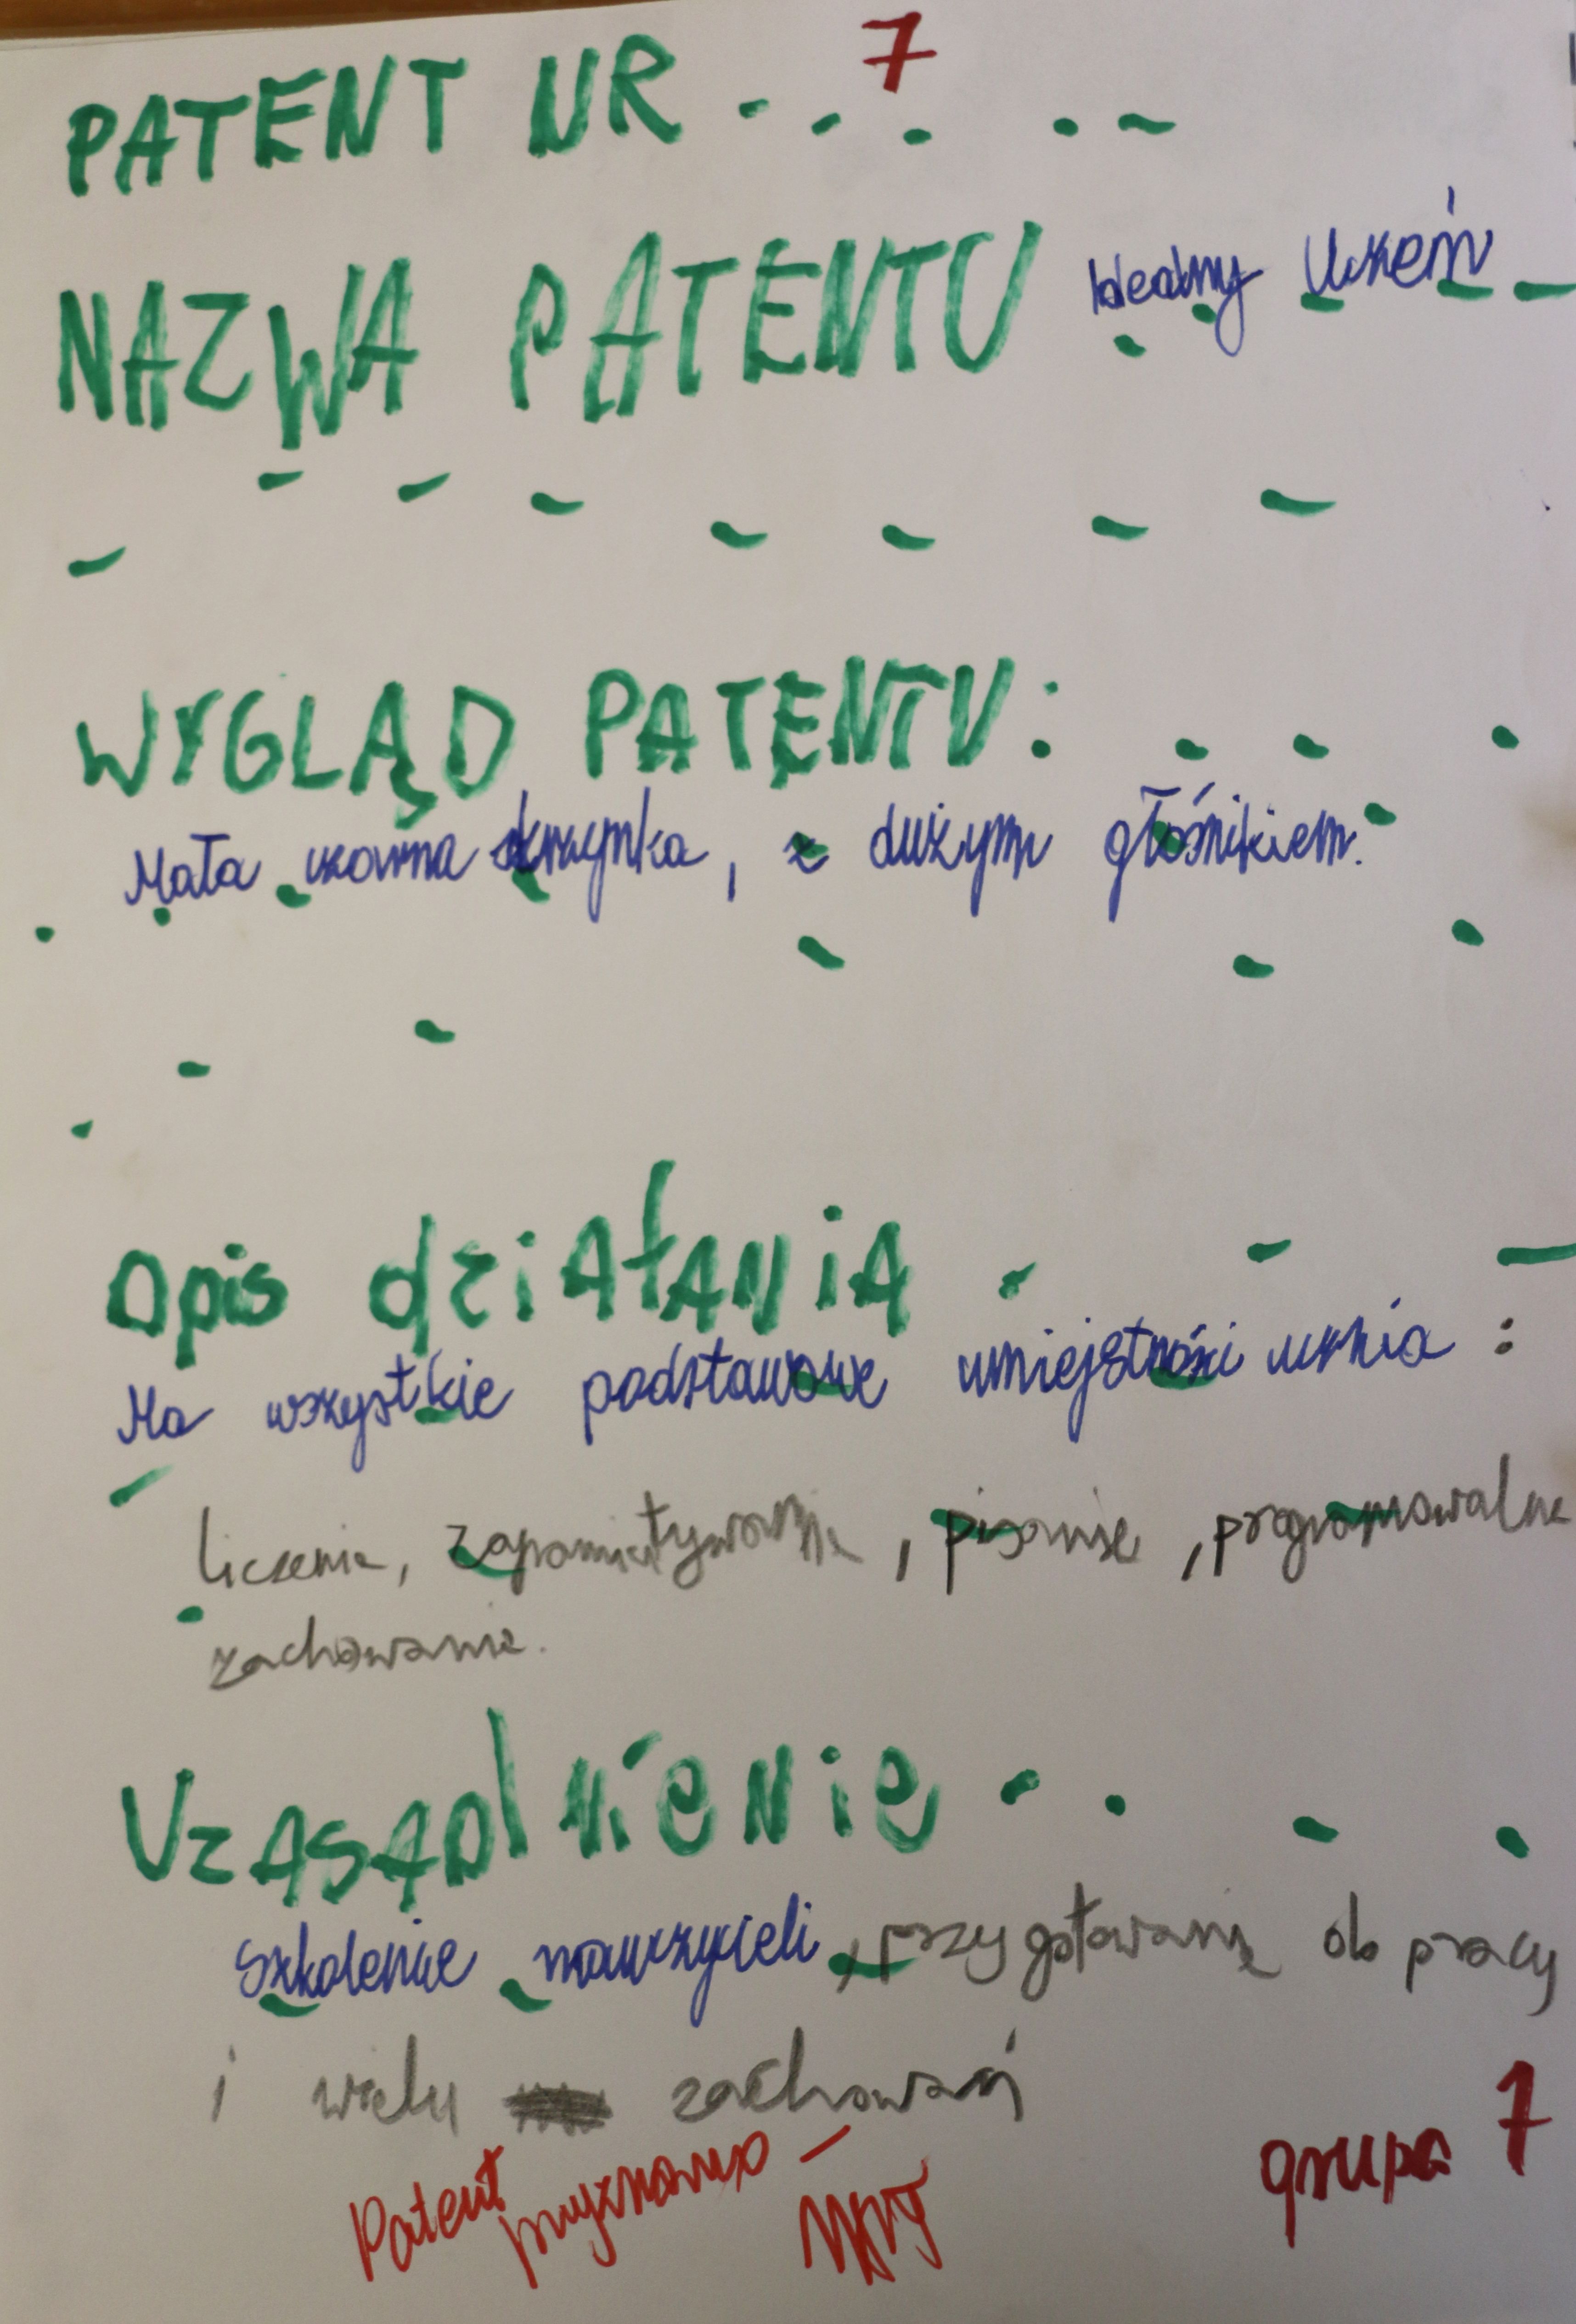 PATENT NR . . . . . 7
NAZWA PATENTU Idealny Uczeń
WYGLĄD PATENTU:
Mała czarna skrzynka, z dużym głośnikiem.
Opis działania
Ma wszystkie podstawowe umiejętności ucznia :
liczenie, zapamiętywanie, pisanie, programowalne
zachowanie.
Uzasądnienie
szkolenie nauczycieli, przygotowanie do pracy
i wielu zachowań
Patent przyznano -
grupa 7